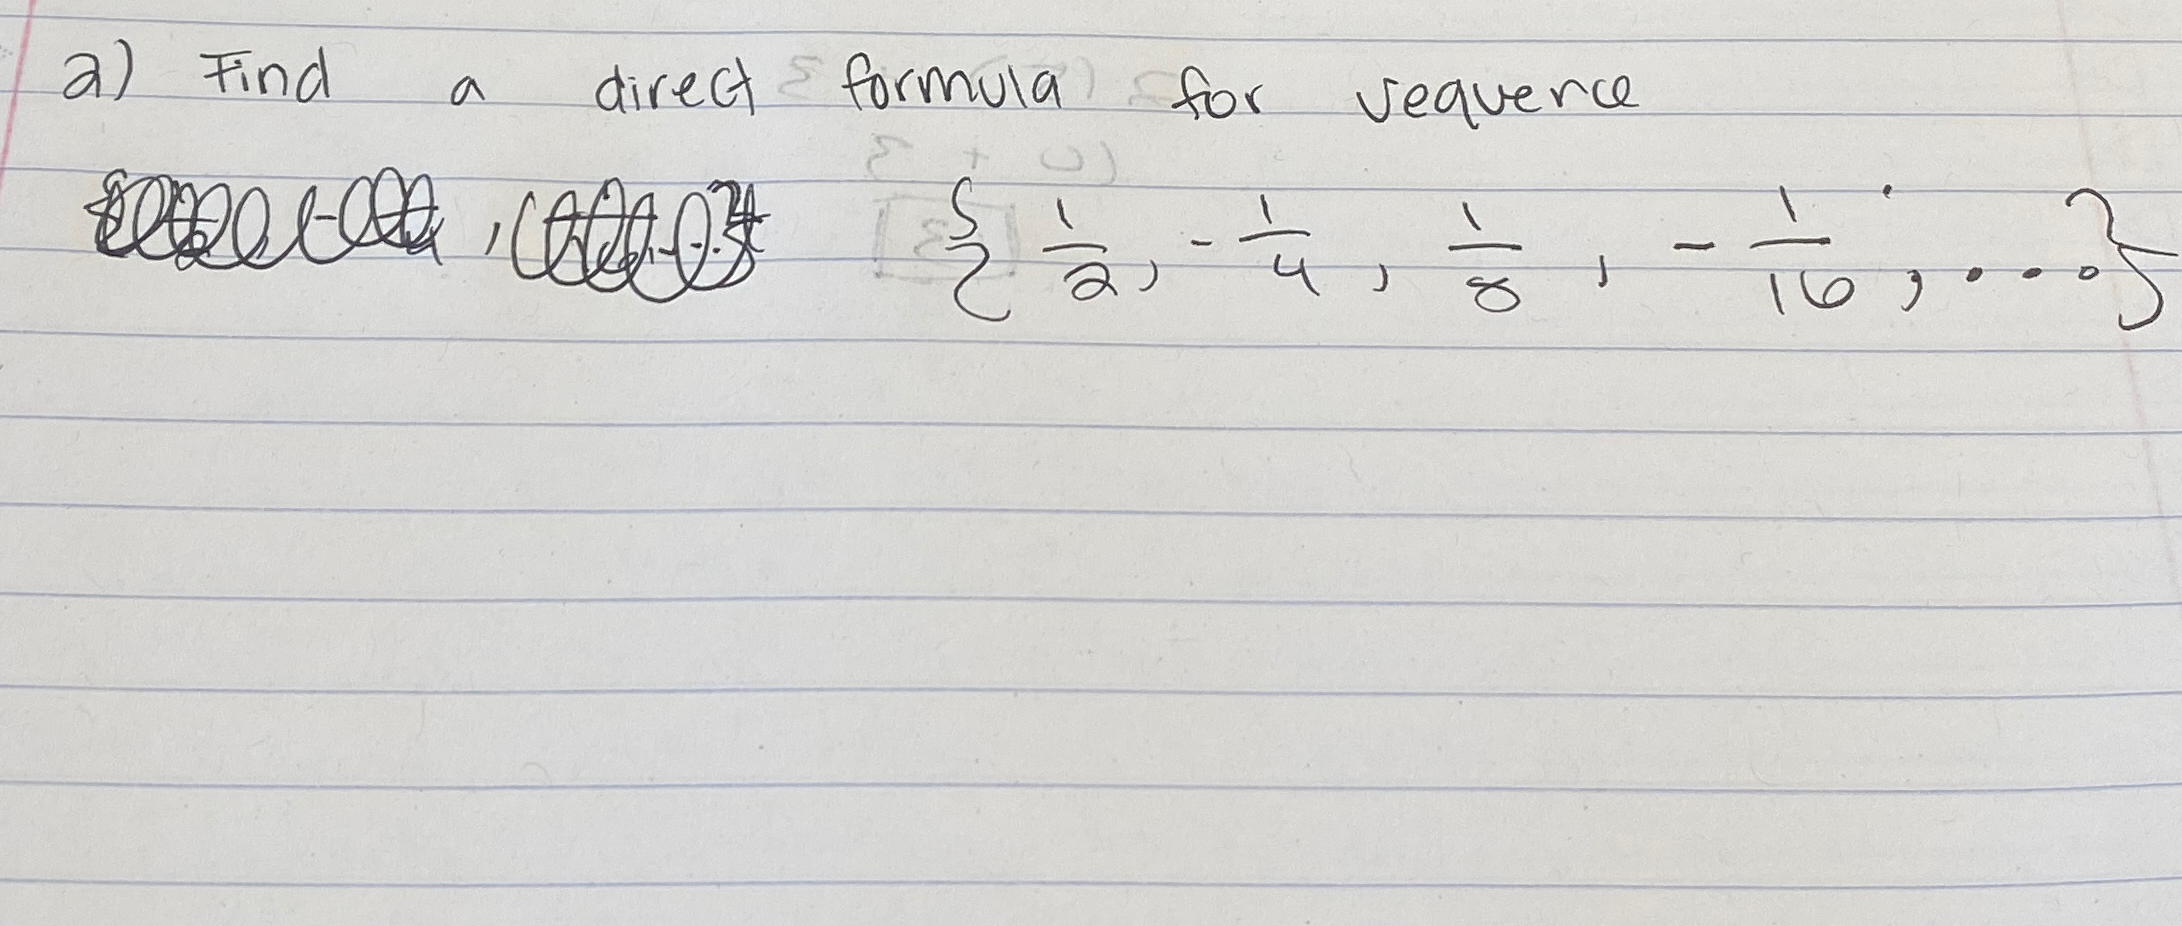 2) Find a direct formula for sequence
{ 1/2, - 1/4, 1/8, - 1/16, ...}